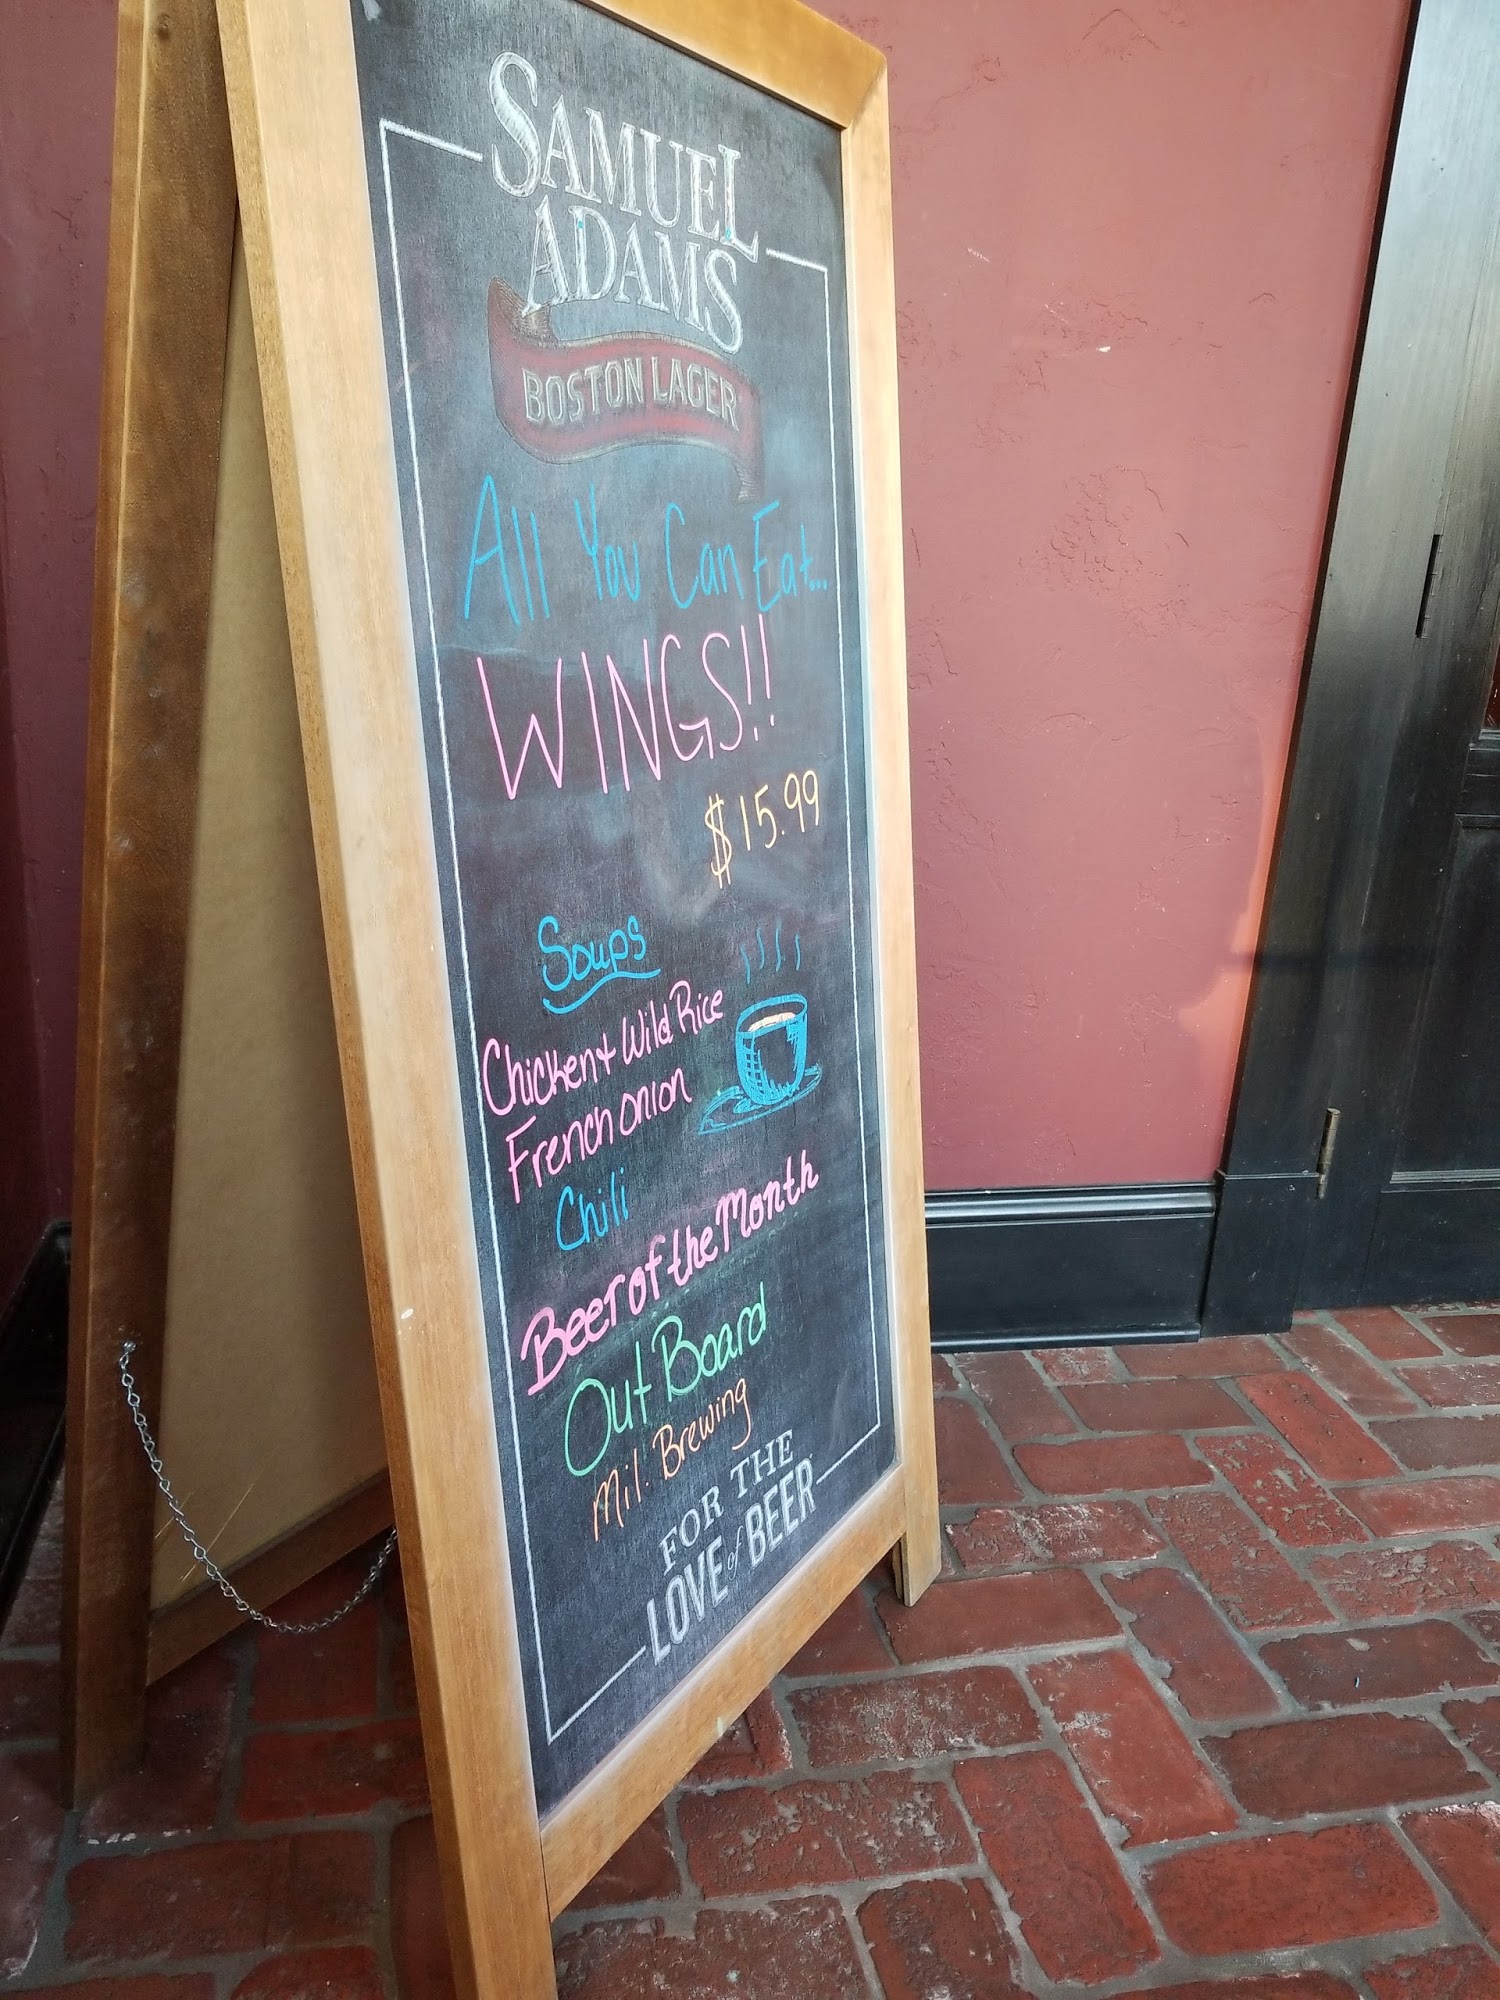 SAMUEL
ADAMS
BOSTON LAGER
All You Can Eat...
WINGS!!
$15.99
Soups
Chicken & Wild Rice
French Onion
Chili
Beer of the Month
Out Board
Mil. Brewing
FOR THE
LOVE of BEER